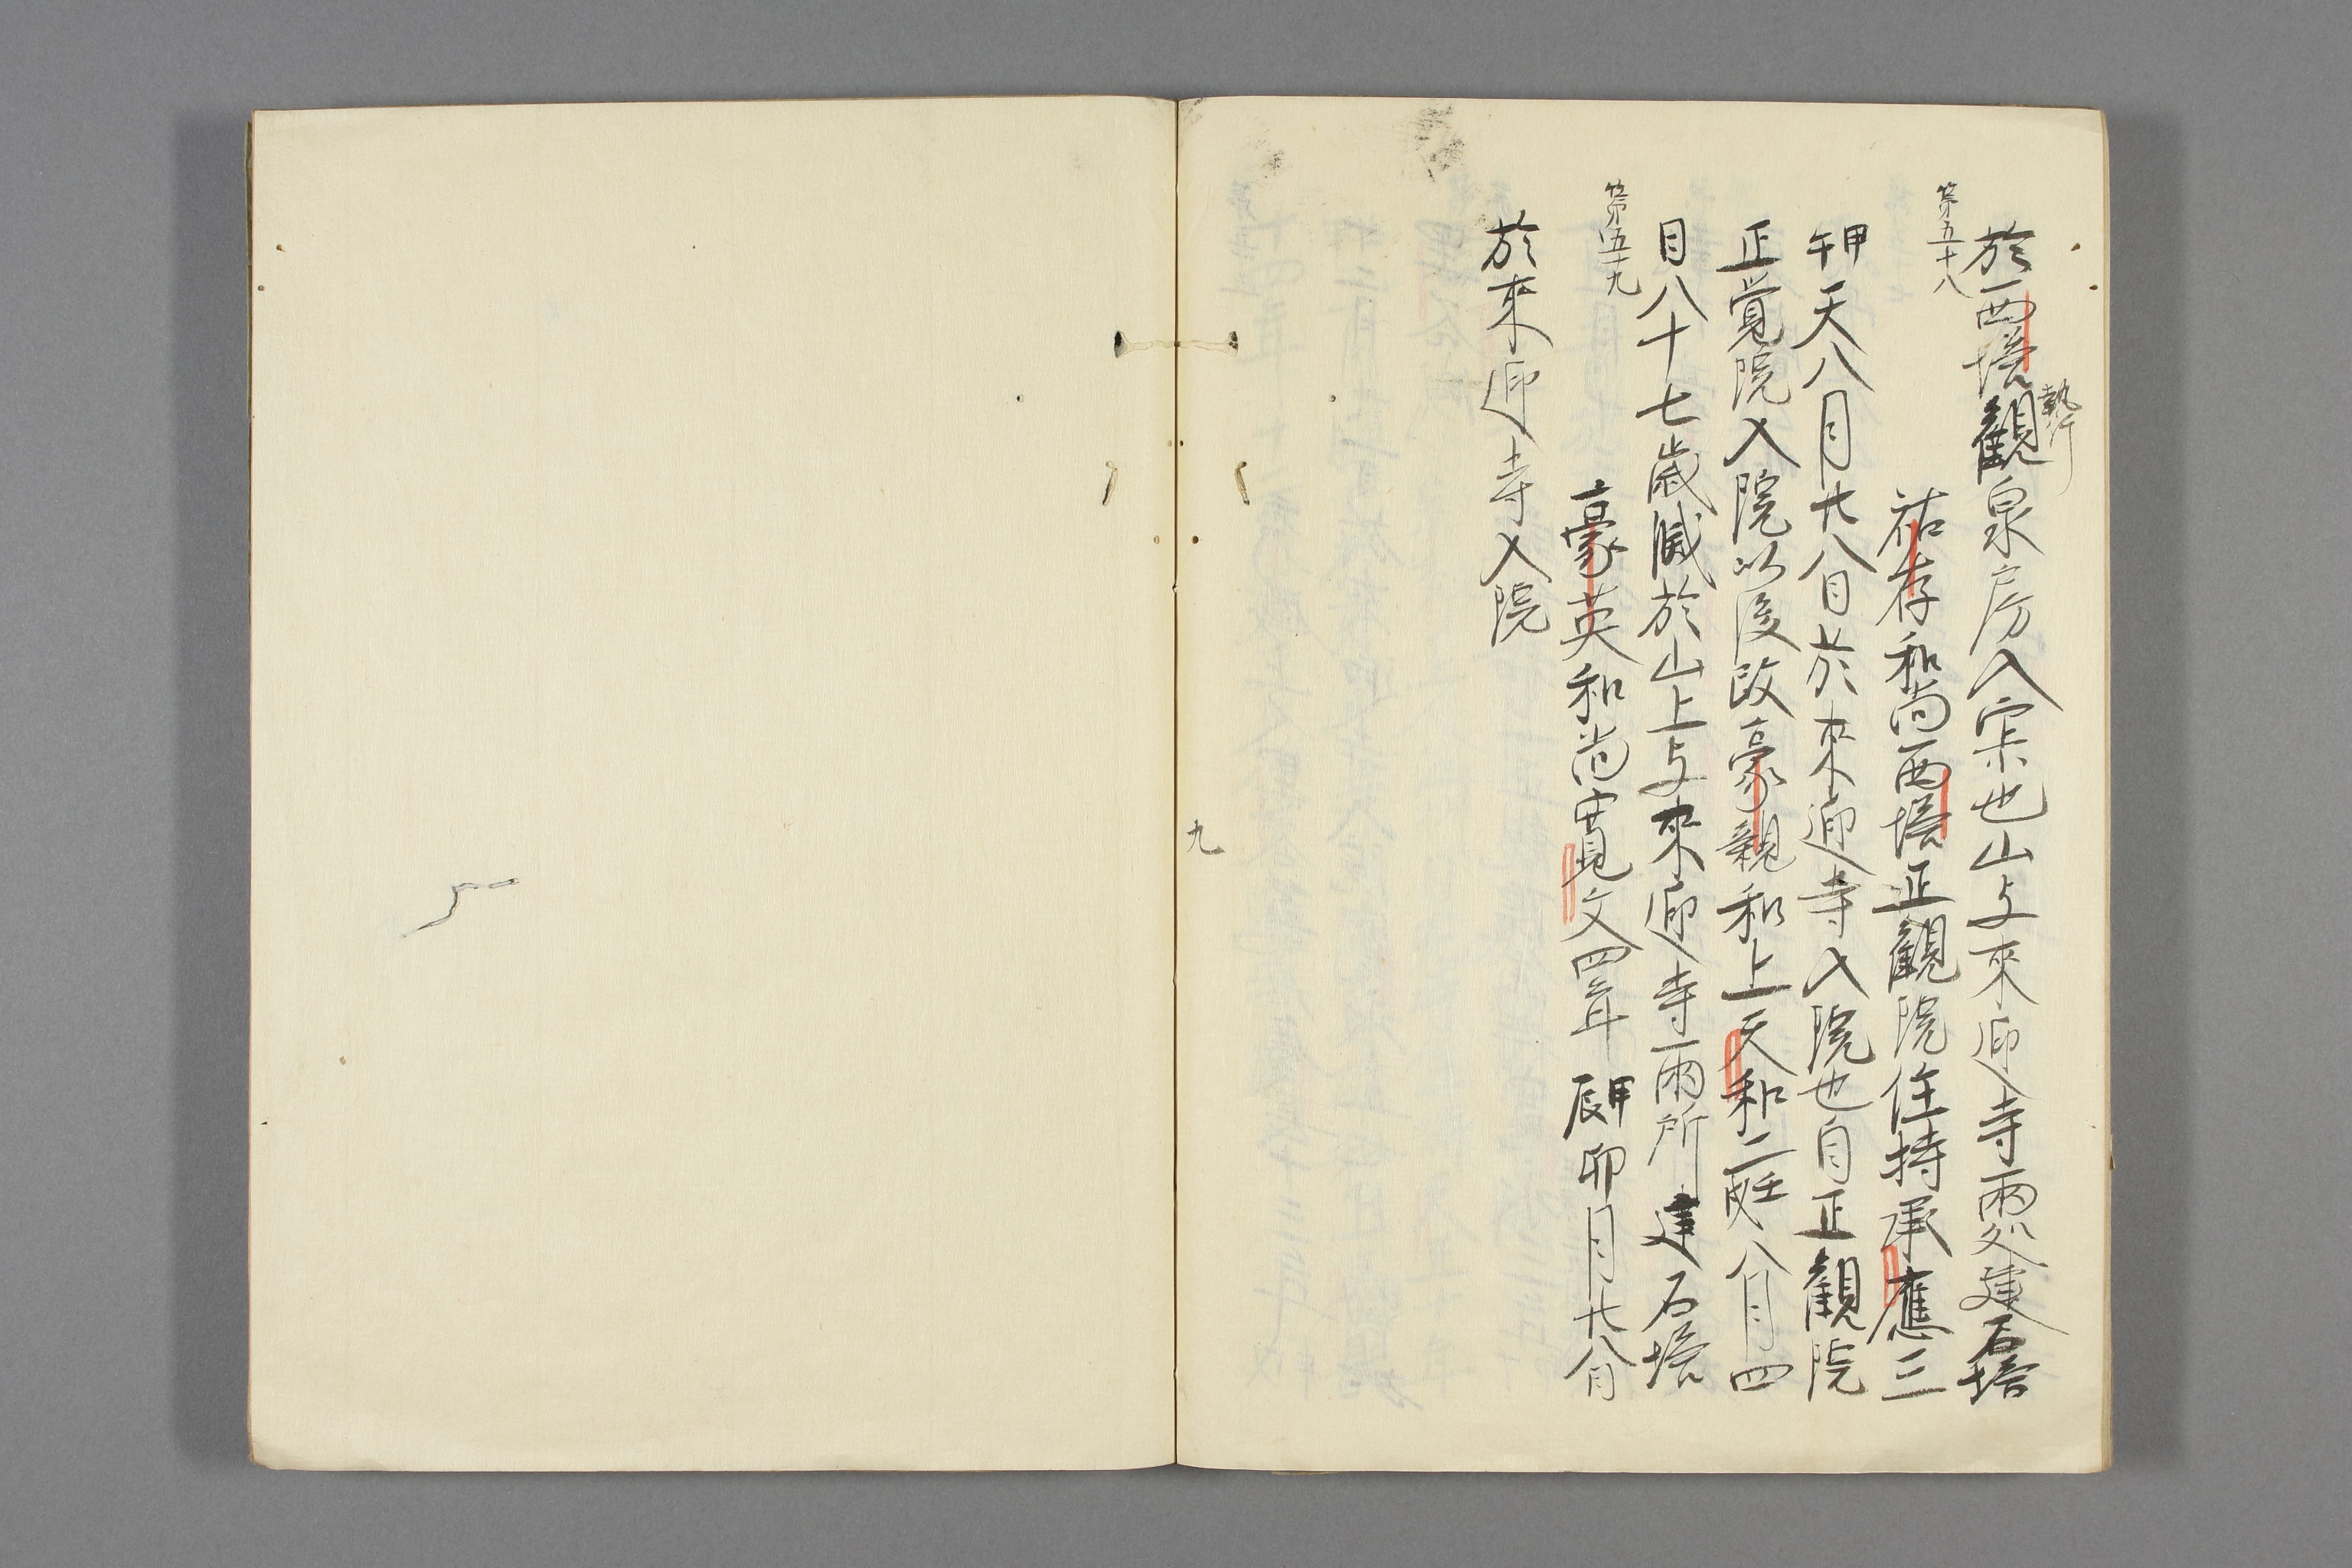 於西塔執行観泉房入寂也山与來迎寺兩処建石塔
第五十八
祐存和尚西塔正観院住持承應三
甲午天八月廿八日於來迎寺入院也自正観院
正覚院入院以後改豪親和上天和二壬戌八月四
日八十七歳滅於山上与來迎寺兩所建石塔
第五十九
豪英和尚寛文四年甲辰卯月廿八日
於來迎寺入院
九